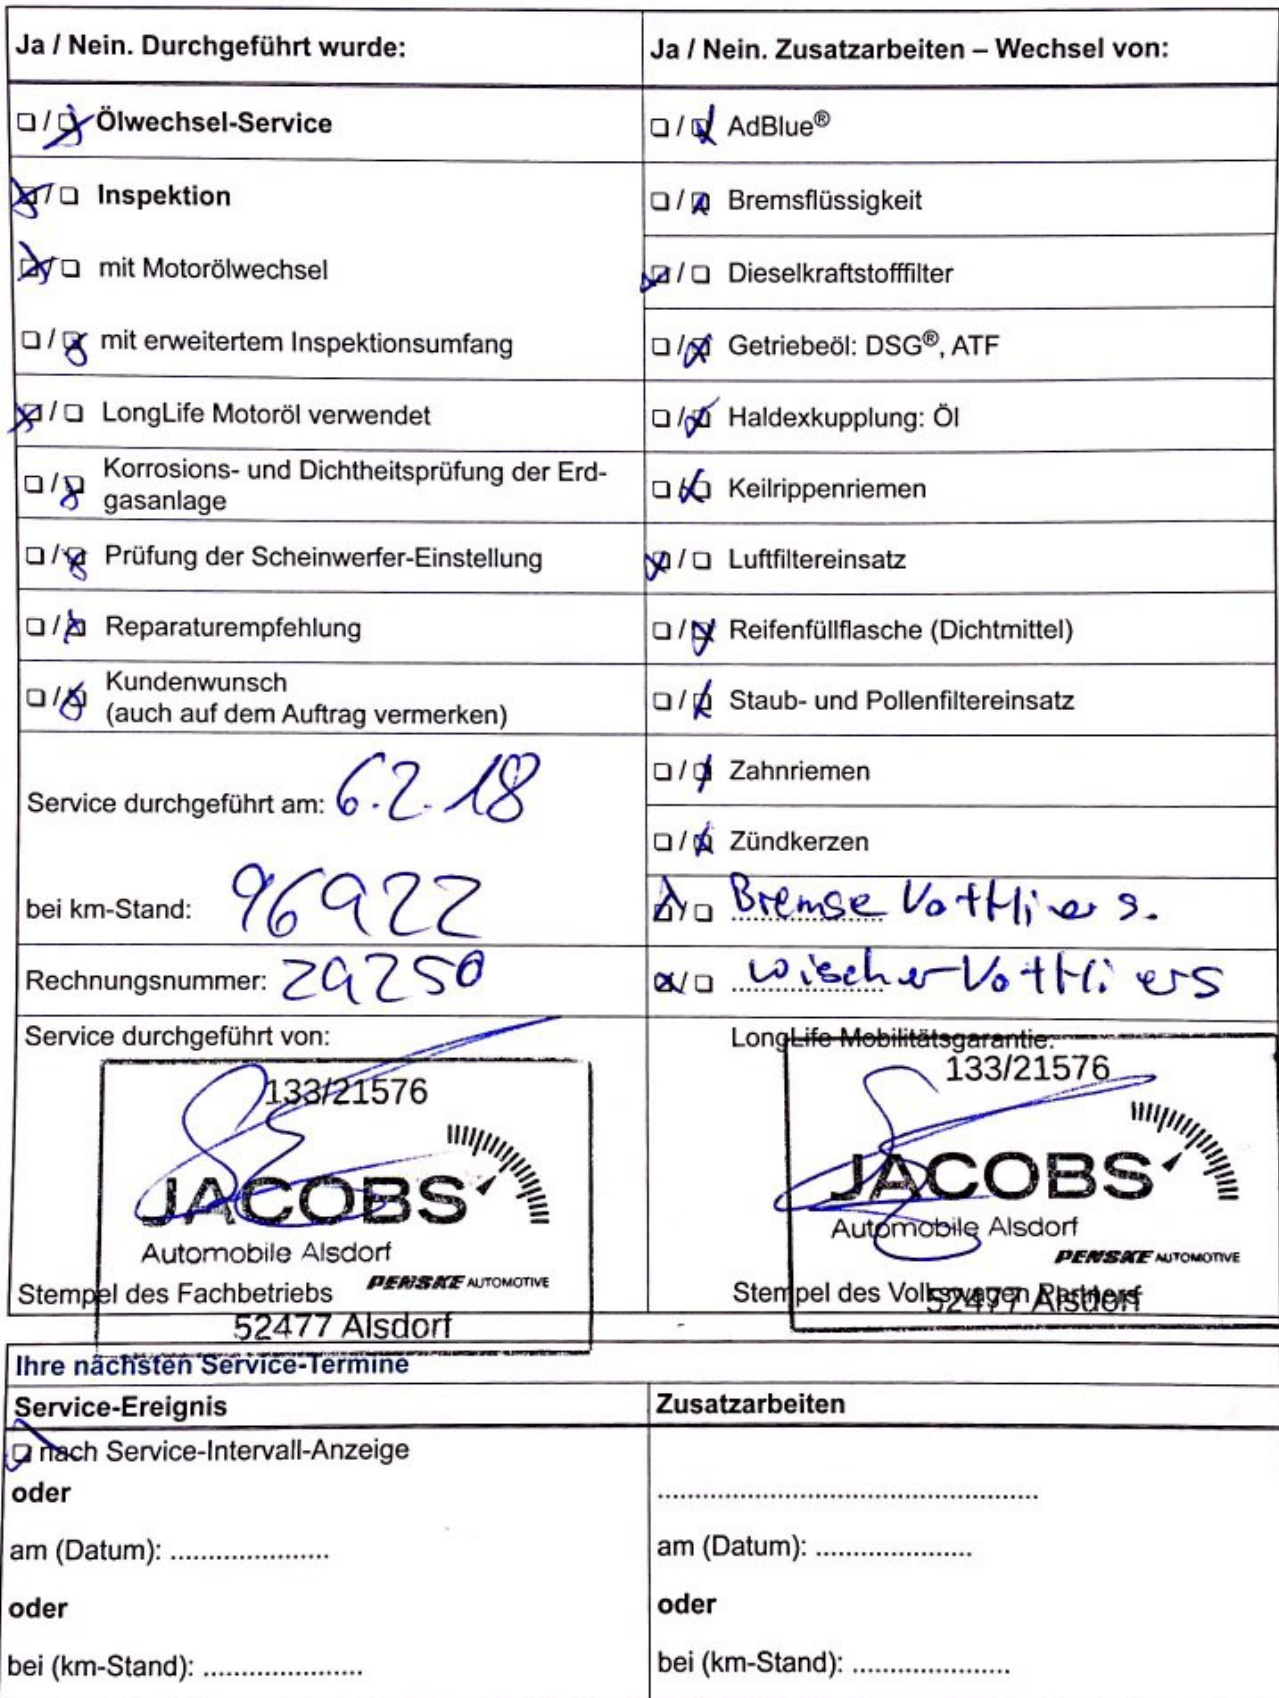 Ja / Nein. Durchgeführt wurde:
Ölwechsel-Service
Inspektion
mit Motorölwechsel
mit erweitertem Inspektionsumfang
LongLife Motoröl verwendet
Korrosions- und Dichtheitsprüfung der Erd-
gasanlage
Prüfung der Scheinwerfer-Einstellung
Reparaturempfehlung
Kundenwunsch
(auch auf dem Auftrag vermerken)
Service durchgeführt am: 6.2.18
bei km-Stand: 96922
Rechnungsnummer: 29250
Service durchgeführt von:
133/21576
JACOBS
Automobile Alsdorf
PENSKE AUTOMOTIVE
Stempel des Fachbetriebs
52477 Alsdorf
Ja / Nein. Zusatzarbeiten – Wechsel von:
AdBlue®
Bremsflüssigkeit
Dieselkraftstofffilter
Getriebeöl: DSG®, ATF
Haldexkupplung: Öl
Keilrippenriemen
Luftfiltereinsatz
Reifenfüllflasche (Dichtmittel)
Staub- und Pollenfiltereinsatz
Zahnriemen
Zündkerzen
Bremse
wischer
LongLife Mobilitätsgarantie:
133/21576
JACOBS
Automobile Alsdorf
PENSKE AUTOMOTIVE
Stempel des Volkswagen Partners
52477 Alsdorf
Ihre nächsten Service-Termine
Service-Ereignis
nach Service-Intervall-Anzeige
oder
am (Datum): .....................
oder
bei (km-Stand): .....................
Zusatzarbeiten
am (Datum): .....................
oder
bei (km-Stand): .....................